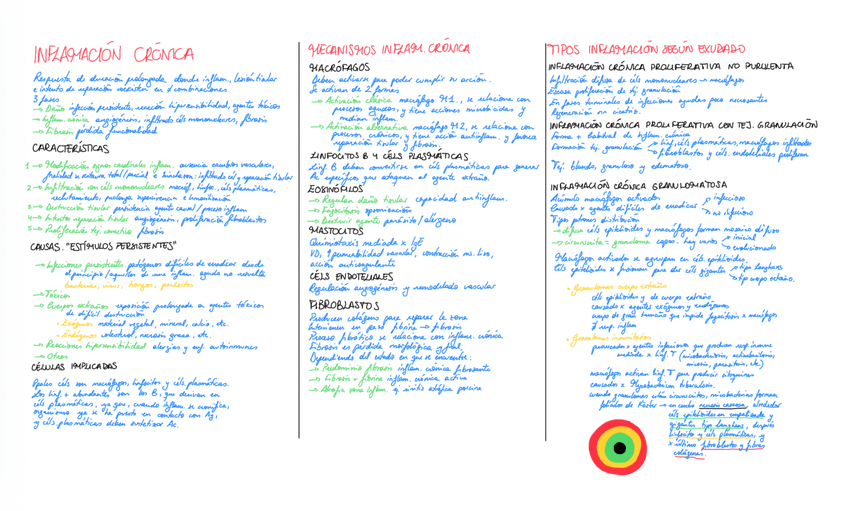 INFLAMACIÓN CRÓNICA
Respuesta de duración prolongada donde inflam, lesión tisular
e intento de reparación coexisten en ≠ combinaciones
3 fases
→ Daño infección persistente, reacción hipersensibilidad, agentes tóxicos
→ Inflam. crónica angiogénesis, infiltrado céls mononucleares, fibrosis
→ Fibrosis pérdida funcionalidad
CARACTERÍSTICAS
1 → Modificación signos cardinales inflam. ausencia cambios vasculares,
2 → Infiltración con céls mononucleares macróf, linfos, céls plasmáticas,
reclutamiento, prolonga supervivencia e inmovilización
3 → Destrucción tisular persistencia agente causal / proceso inflam
4 → Intento reparación tisular angiogénesis, proliferación fibroblastos
5 → Proliferación tej conectivo fibrosis
CAUSAS. "ESTÍMULOS PERSISTENTES"
→ Infecciones persistentes patógenos difíciles de erradicar desde
el principio / agentes de una inflam. aguda no resuelta
bacterias, virus, hongos, parásitos
→ Tóxicos
→ Cuerpos extraños exposición prolongada a agentes tóxicos
de difícil destrucción
• Exógenos material vegetal, mineral, calcio, etc.
• Endógenos colesterol, necrosis grasa, etc.
→ Reacciones hipersensibilidad alergias y enf. autoinmunes
→ Otros
CÉLULAS IMPLICADAS
Ppales céls son macrófagos, linfocitos y céls. plasmáticas.
Los linf + abundantes son los B, que derivan en
céls plasmáticas, ya que, cuando inflam se cronifica,
organismo ya se ha puesto en contacto con Ag,
y céls plasmáticas deben sintetizar Ac.
MECANISMOS INFLAM. CRÓNICA
MACRÓFAGOS
Deben activarse para poder cumplir su acción.
Se activan de 2 formas
→ Activación clásica macrófago M1, se relaciona con
procesos agudos, y tiene acciones microbicidas y
median inflam
→ Activación alternativa macrófago M2, se relaciona con
procesos crónicos, y tiene acción antiinflam. y favorece
reparación tisular y fibrosis
LINFOCITOS B Y CÉLS PLASMÁTICAS
Linf B deben convertirse en céls plasmáticas para generar
Ac específicos que ataquen al agente extraño.
EOSINÓFILOS
→ Regulan daño tisular capacidad antiinflam.
→ Fagocitosis opsonización
→ Destruir agente parásito / alérgeno
MASTOCITOS
Quimiotaxis mediada x IgE
VD, ↑ permeabilidad vascular, contracción ms. liso,
acción anticoagulante
CÉLS ENDOTELIALES
Regulación angiogénesis y remodelado vascular
FIBROBLASTOS
Producen colágeno para reparar la zona
Intervienen en paso fibrina → fibrosis
Proceso fibrótico se relaciona con inflam. crónica
Fibrosis es pérdida morfológica y funcional
Dependiendo del estado en que se encuentre:
→ Predominio fibrosis inflam. crónica fibrosante
→ Fibrosis + fibrina inflam. crónica activa
TIPOS INFLAMACIÓN SEGÚN EXUDADO
INFLAMACIÓN CRÓNICA PROLIFERATIVA NO PURULENTA
Infiltración difusa de céls mononucleares → macrófagos
Escasa proliferación de tj granulación
En fases terminales de infecciones agudas poco necrosantes
Regeneración sin cicatriz.
INFLAMACIÓN CRÓNICA PROLIFERATIVA CON TEJ. GRANULACIÓN
Forma + habitual de inflam. crónica
Formación tej granulación → linf, céls plasmáticas, macrófagos infiltrados
→ fibroblastos y céls. endoteliales proliferan
Tej. blando, granuloso y edematoso.
INFLAMACIÓN CRÓNICA GRANULOMATOSA
Acúmulo macrófagos activados
Causada x agentes difíciles de erradicar → infeccioso
→ no infeccioso
Tipos patrones distribución
→ difuso céls epitelioides y macrófagos forman mosaico difuso
→ circunscrita - granuloma cápsu. hay varios → inicial
→ evolucionado
Macrófagos activados se agrupan en céls epitelioides.
Céls epitelioides se fusionan para dar céls gigantes → tipo Langhans
→ tipo cuerpo extraño.
• Granulomas cuerpo extraño
céls epitelioides y de cuerpo extraño.
causado x agentes exógenos y endógenos
cuerpo de gran tamaño que impide fagocitosis x macrófagos
∄ resp inflam
• Granulomas inmunitarios
provocados x agentes infecciosos que producen resp inmune
mediada x linf T (micobacterias, actinobacterias,
micosis, parasitosis, etc)
macrófagos activan linf T para producir citoquinas
causados x Mycobacterium tuberculosis.
cuando granulomas están circunscritos, micobacterias forman
folículos de Köster → en centro necrosis caseosa, alrededor
céls epitelioides en empalizada y
gigantes tipo Langhans, después
linfocitos y céls plasmáticas, y
x último fibroblastos y fibras
colágenas.